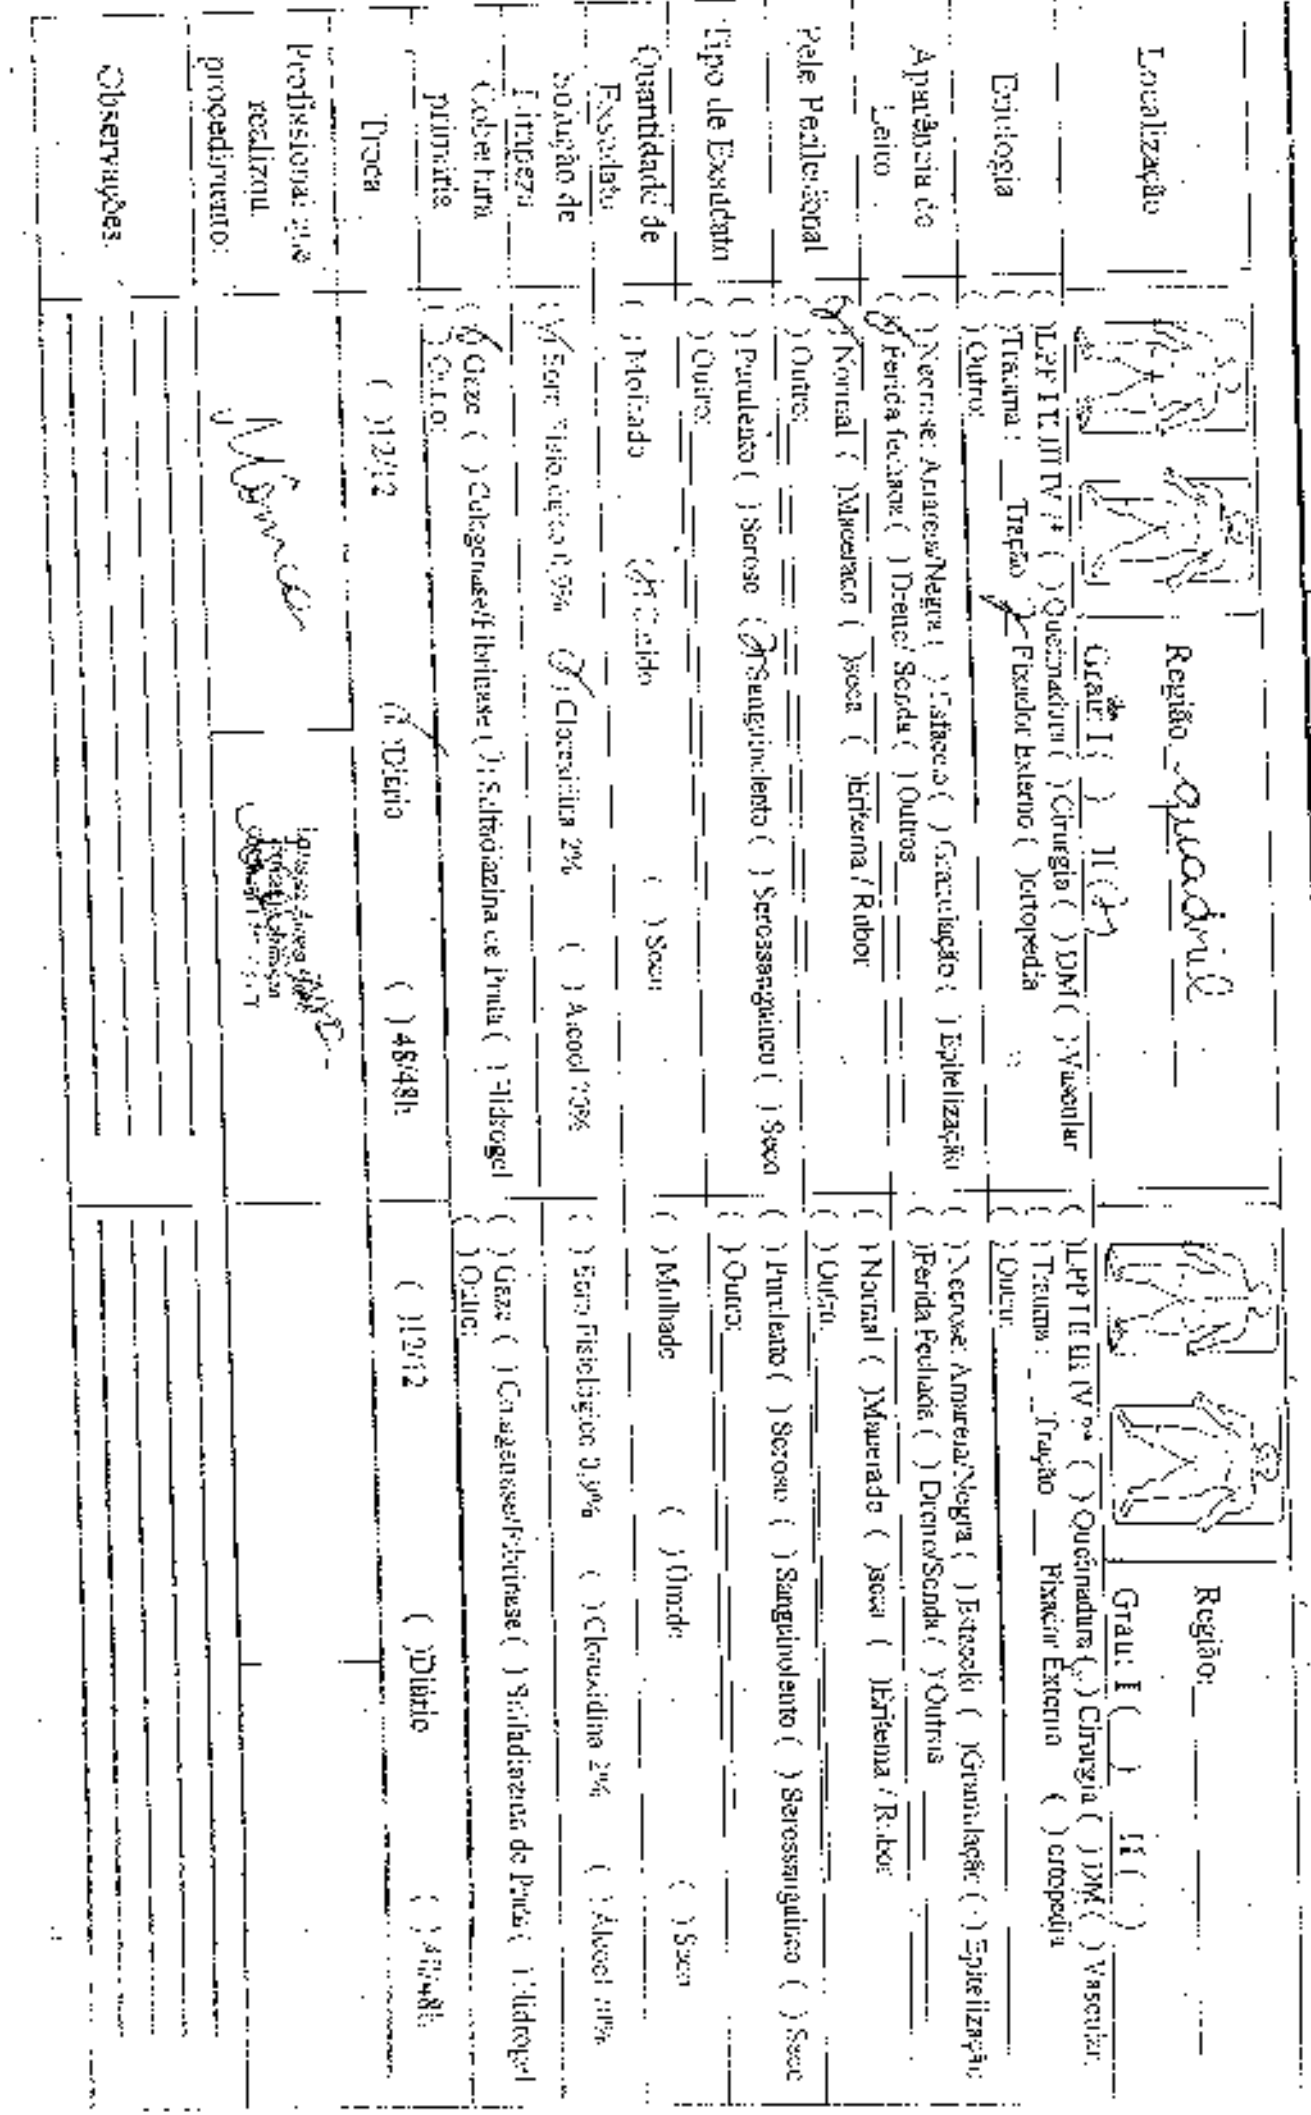 Localização
Região quadril
Região:
Grau: I ( ) II ( )
Grau: I ( ) II ( )
Etiologia
( )LPP I II III IV ( ) Queimadura ( ) Cirurgia ( ) DM ( ) Vascular
( )Trauma : ___ Tração Fixador Externo ( )ortopedia
( ) Outro:
( )LPP I II III IV ( ) Queimadura ( ) Cirurgia ( ) DM ( ) Vascular
( ) Trauma : ___ Tração ___ Fixador Externo ( ) ortopedia
( ) Outro:
Aparência do
Leito
( ) Necrose: Amarela/Negra ( ) Esfacelo ( ) Granulação ( ) Epitelização
Ferida fechada ( ) Dreno/ Sonda ( ) Outros
( ) Necrose: Amarela/Negra ( ) ( )Granulação ( ) Epitelização
( )Ferida Fechada ( ) Dreno/Sonda ( ) Outros
Pele Perilesional
Normal ( )Macerado ( )seca ( )Eritema / Rubor
( ) Outro:
( ) Normal ( )Macerado ( )seca ( )Eritema / Rubor
( ) Outro:
Tipo de Exsudato
( ) Purulento ( ) Seroso Sanguinolento ( ) Serossanguíneo ( ) Seco
( ) Outro:
( ) Purulento ( ) Seroso ( ) Sanguinolento ( ) Serossanguíneo ( ) Seco
( ) Outro:
Quantidade de
Exsudato
( ) Molhado ( ) Seco
( ) Molhado ( ) Úmido ( ) Seco
Solução de
Limpeza
Soro Fisiológico 0,9% Clorexidina 2% ( ) Álcool 70%
( ) Soro Fisiológico 0,9% ( ) Clorexidina 2% ( ) Álcool 70%
Cobertura
primária
Gaze ( ) Colagenase/Fibrinase ( ) Sulfadiazina de Prata ( ) Hidrogel
( ) Outro:
( ) Gaze ( ) Colagenase/Fibrinase ( ) Sulfadiazina de Prata ( ) Hidrogel
( ) Outro:
Troca
( )12/12 Diário ( )48/48h
( )12/12 ( )Diário ( ) 48/48h
Profissional que
realizou
procedimento:
Observações